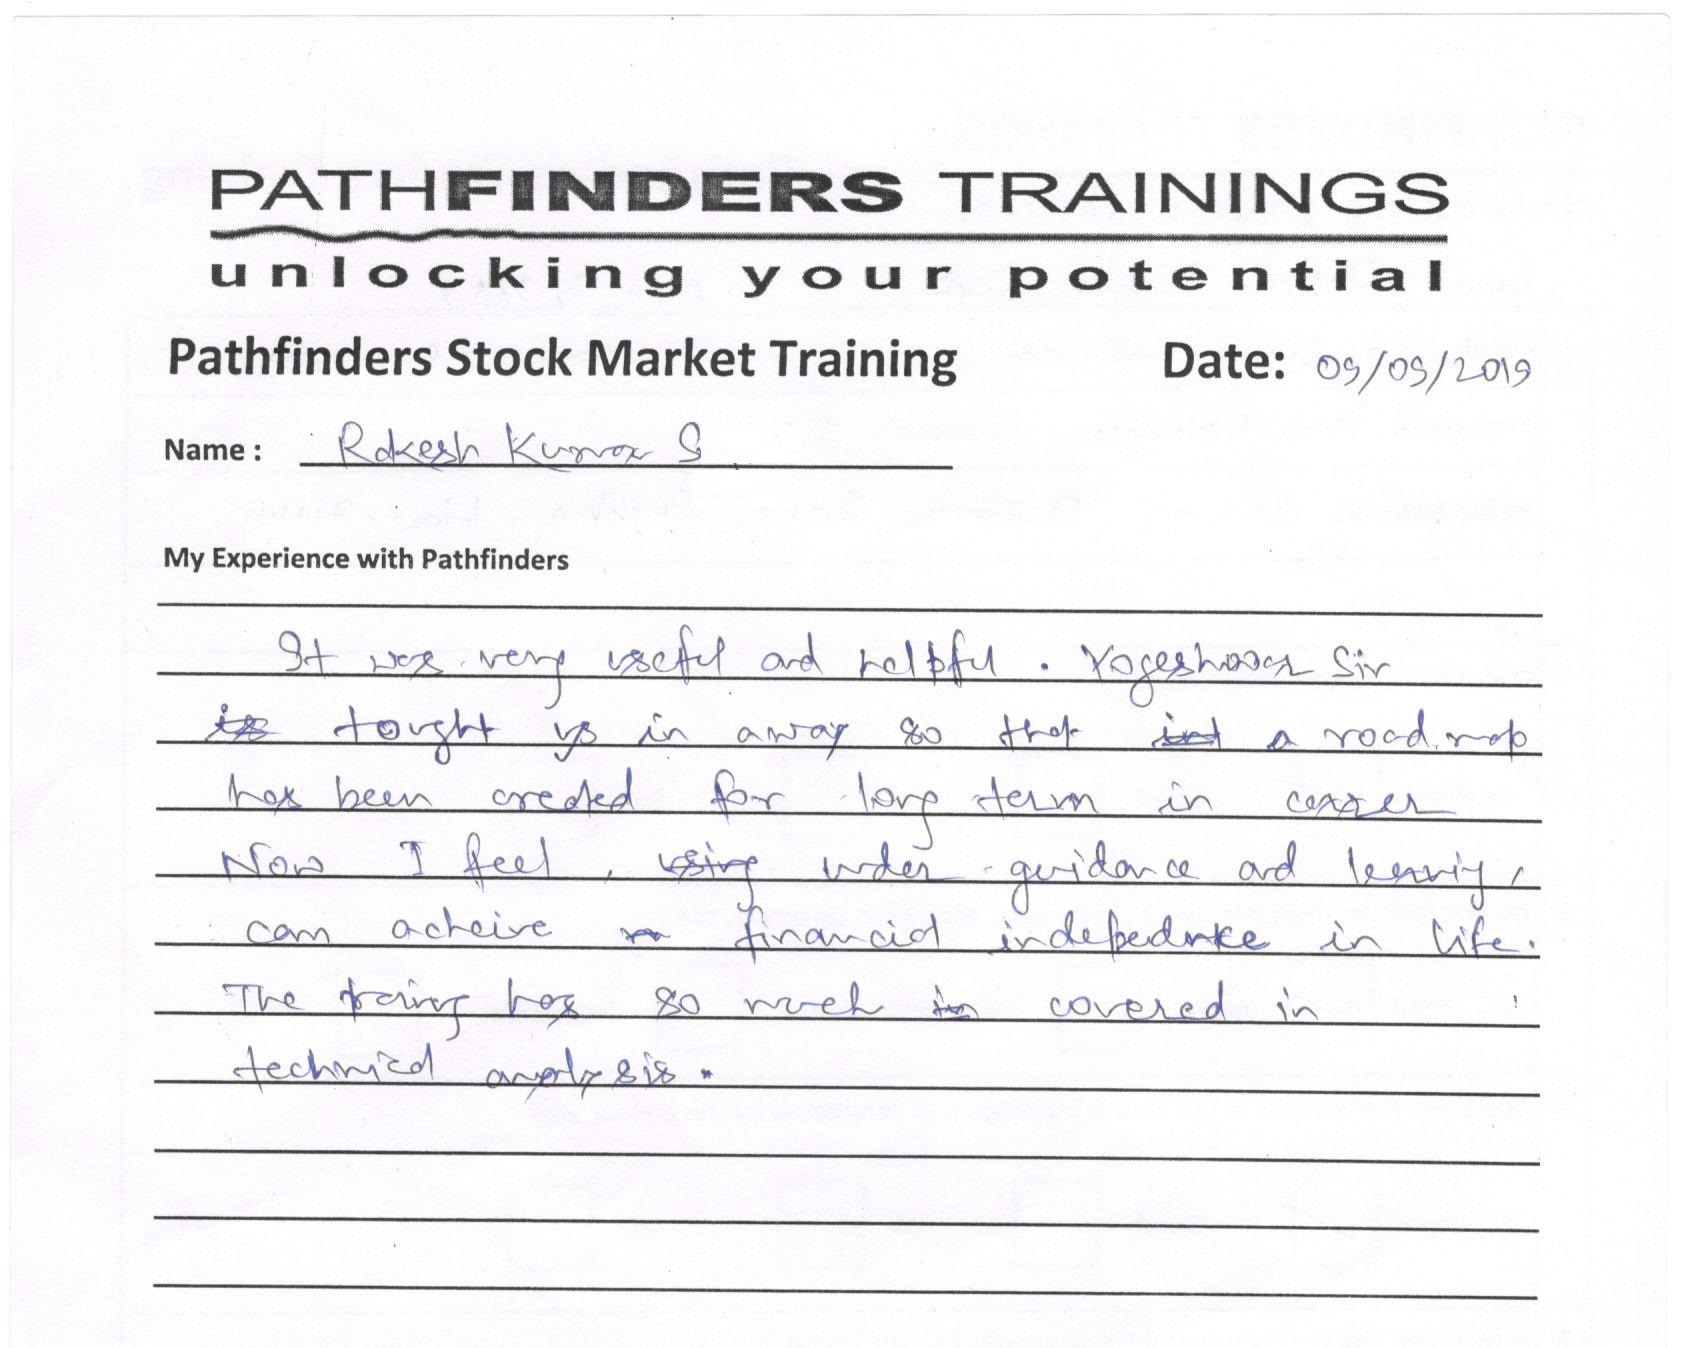 PATHFINDERS TRAININGS
unlocking your potential
Pathfinders Stock Market Training Date: 09/09/2019
Name : Rakesh Kumar S
My Experience with Pathfinders
It was very useful and helpful. Yogeshwar Sir
tought us in a way so that a road map
has been created for long term in career
Now I feel, under guidance and learning,
can acheive financial indepednce in life.
The traning has so much covered in
technical analysis.